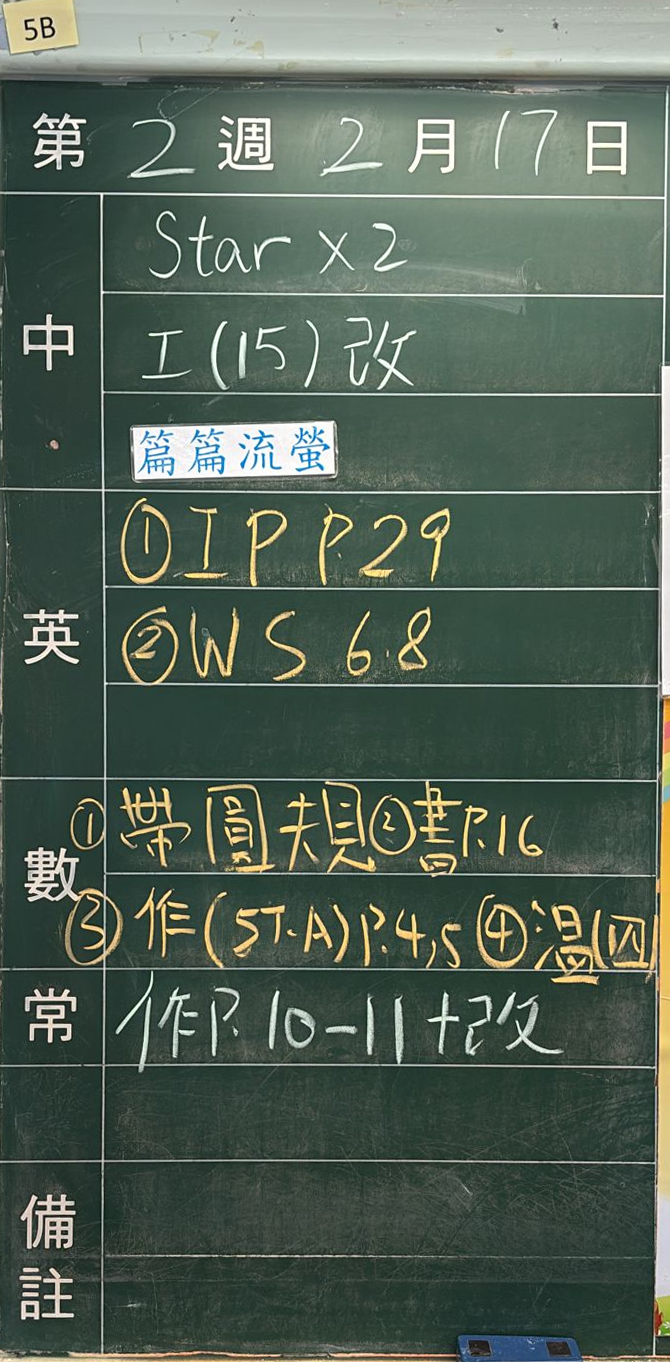 5B
第 2 週 2 月 17 日
中
Star x 2
工 (15) 改
篇篇流螢
英
① I P P.29
② W S 6.8
數
① 帶圓規 ② 書 P.16
③ 作 (5T.A) P.4,5 ④ 溫 (四)
常
作 P. 10-11 + 改
備註